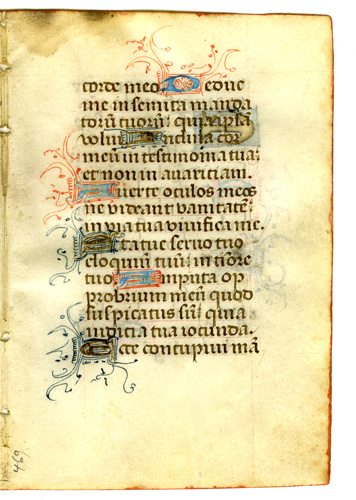 corde meo. Deduc
me in semita manda
torū tuorū: quia ipsā
volui. Inclina cor
meū in testimonia tua:
et non in avaritiam.
Averte oculos meos
ne videant vanitatē:
in via tua vivifica me.
Statue servo tuo
eloquiū tuū: in timore
tuo. Amputa op
probrium meū quod
suspicatus sū: quia
iudicia tua iocunda.
Ecce concupivi mā
469